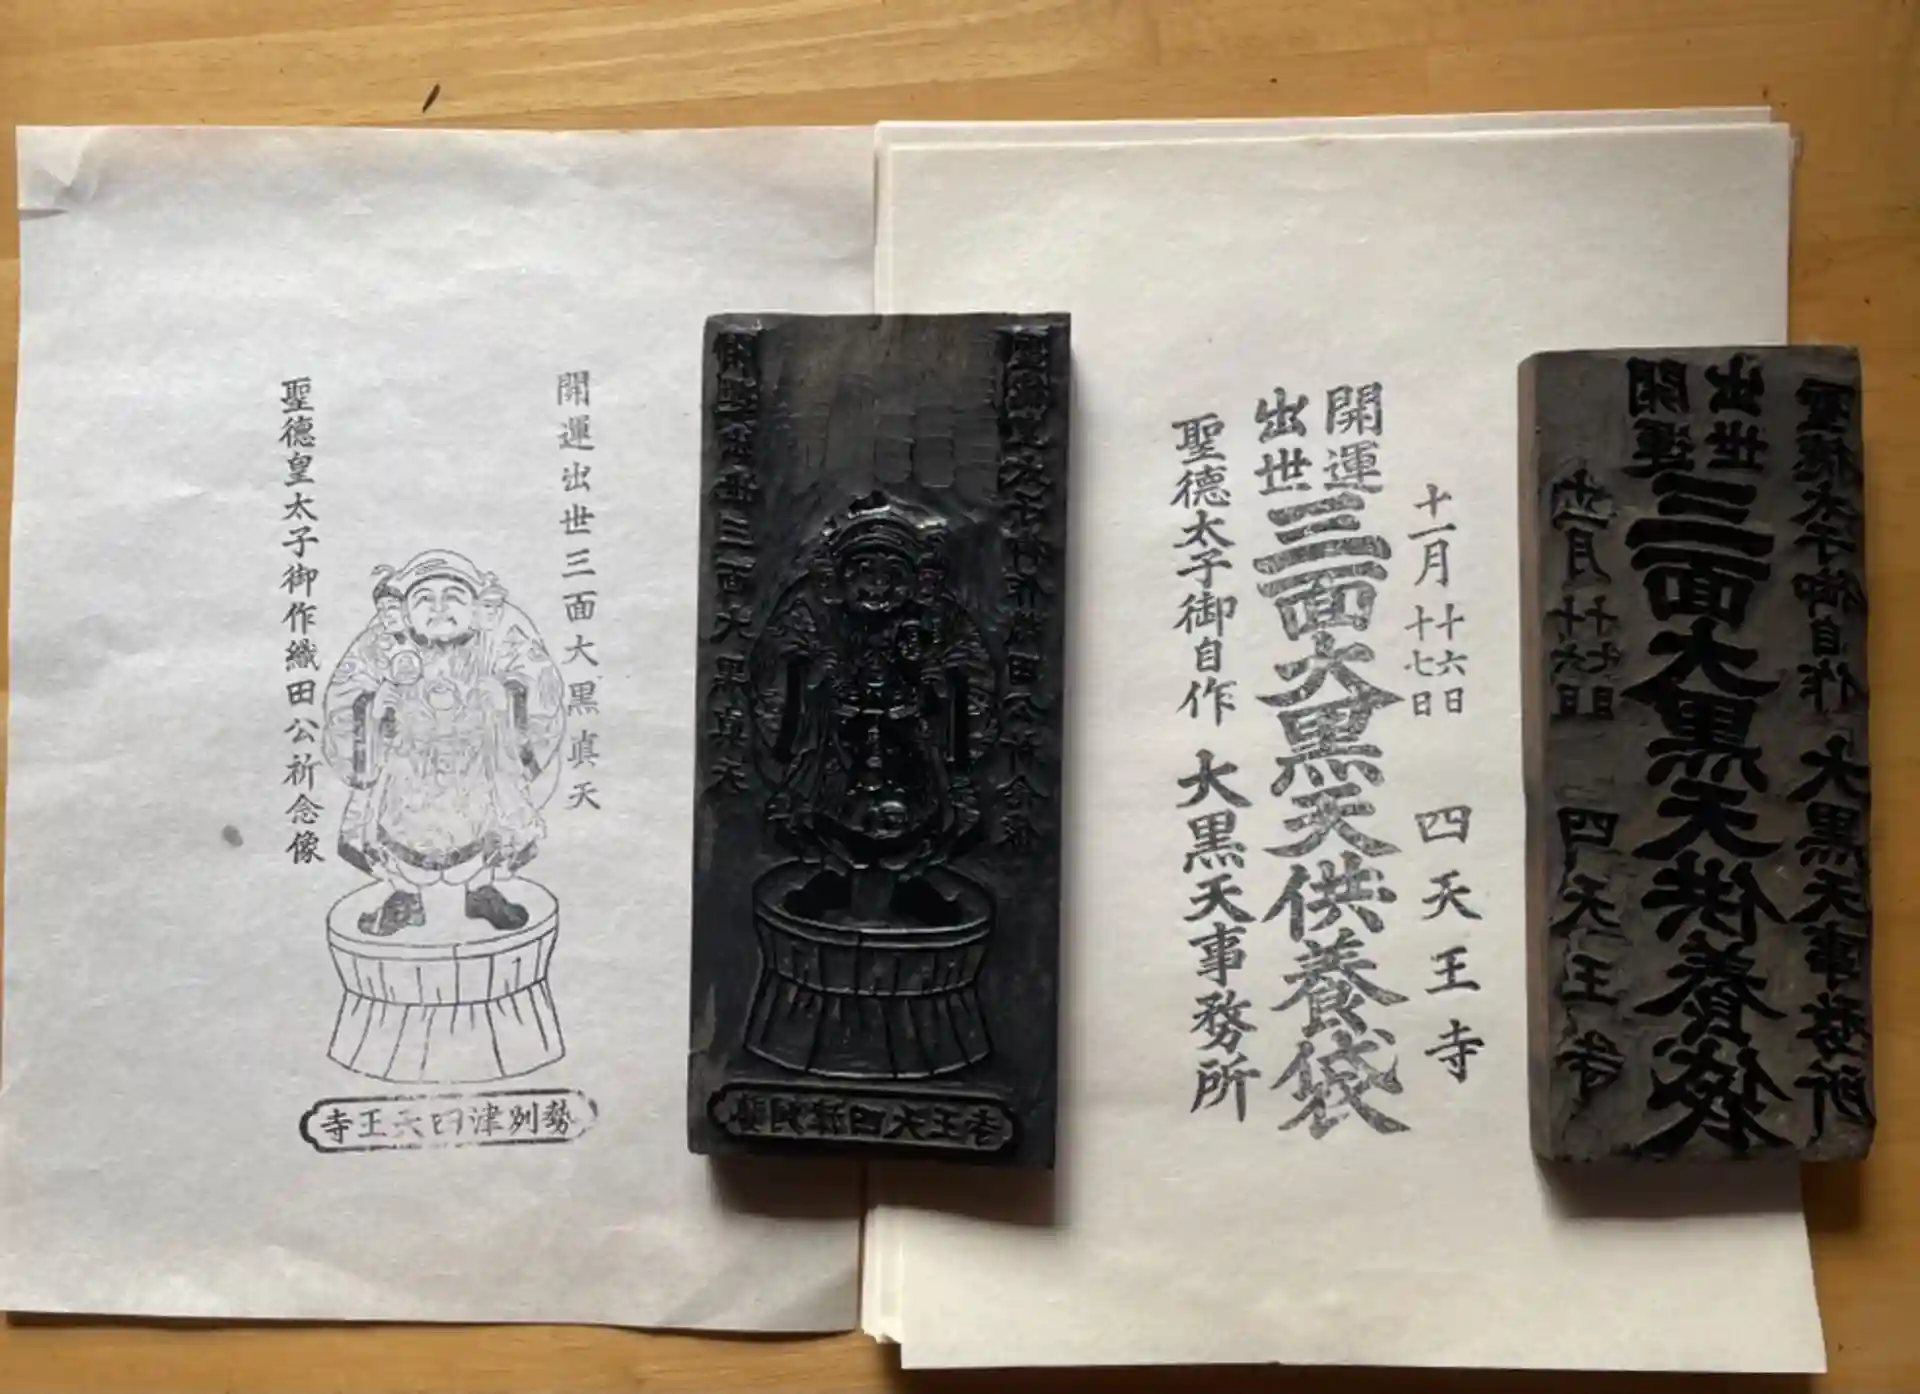 開運出世三面大黒真天
聖德皇太子御作織田公祈念像
勢州別津四天王寺
十一月 十六日 十七日 四天王寺
開運 出世 三面大黒天供養袋
聖德太子御自作 大黒天事務所
開運出世三面大黒真天
十一月 十六日 十七日 四天王寺
開運 出世 三面大黒天供養袋
聖德太子御自作 大黒天事務所